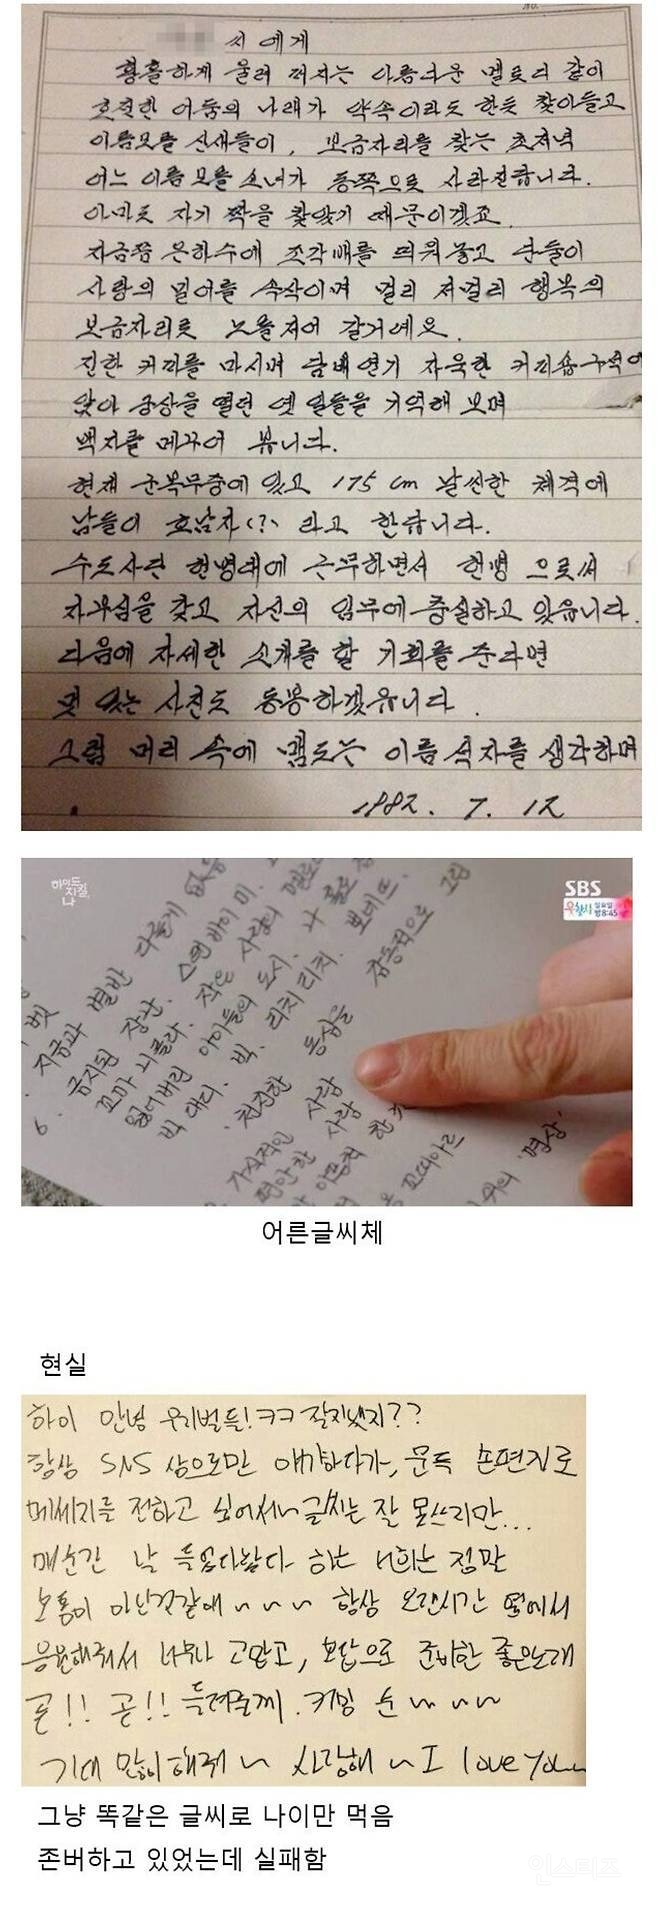 씨에게
황홀하게 울려 퍼지는 아름다운 멜로디 같이
호젓한 어둠의 나래가 약속이라도 한듯 찾아들고
이름모를 산새들이, 보금자리를 찾는 초저녁
어느 이름 모를 소녀가 동쪽으로 사라진답니다.
아마도 자기 짝을 찾았기 때문이겠죠.
지금쯤 은하수에 조각배를 띄워놓고 단둘이
사랑의 밀어를 속삭이며 멀리 저멀리 행복의
보금자리로 노를저어 갈거예요.
진한 커피를 마시며 담배연기 자욱한 커피숍구석에
앉아 공상을 떨던 옛 일들을 기억해 보며
백지를 메꾸어 봅니다.
현재 군복무중에 있고 175 cm 날씬한 체격에
남들이 호남자(?) 라고 한답니다.
수도사단 헌병대에 근무하면서 헌병 으로써
자부심을 갖고 자신의 임무에 충실하고 있읍니다.
다음에 자세한 소개를 할 기회를 준다면
멋 있는 사진도 동봉하겠읍니다.
그럼 머리 속에 맴도는 이름 석자를 생각하며
1982. 7. 12
하이드
지킬,
나
SBS
일요일
밤8:45
지금과 별반 다를게 없음
6. 금지된 장난. 스탠바이미.
꼬마 니콜라. 작은 사랑의 멜로디
잃어버린 아이들의 도시. 나 홀로
빅 대디. 빅. 리치리치. 포네뜨.
천진한 동심을 감동적으로 그림
가식적인 사람
평안한 사람
'명상'
어른글씨체
현실
하이 안녕 우리벌들!ㅋㅋ 잘지냈지??
항상 SNS 상으로만 얘기하다가, 문득 손편지로
메세지를 전하고 싶어서~글씨는 잘 못쓰지만...
매순간 날 들었다놨다 하는 너희는 정말
보통이 아닌것같애~~~ 항상 오랜시간 옆에서
응원해줘서 너무나 고맙고, 보답으로 준비한 좋은노래
곧!! 곧!! 들려줄께. 커밍 순~~~
기대 많이해줘~ 사랑해~I love you~
그냥 똑같은 글씨로 나이만 먹음
존버하고 있었는데 실패함
인스티즈